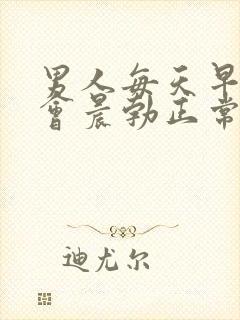 男人每天早
會晨勃正常
迪尤尔